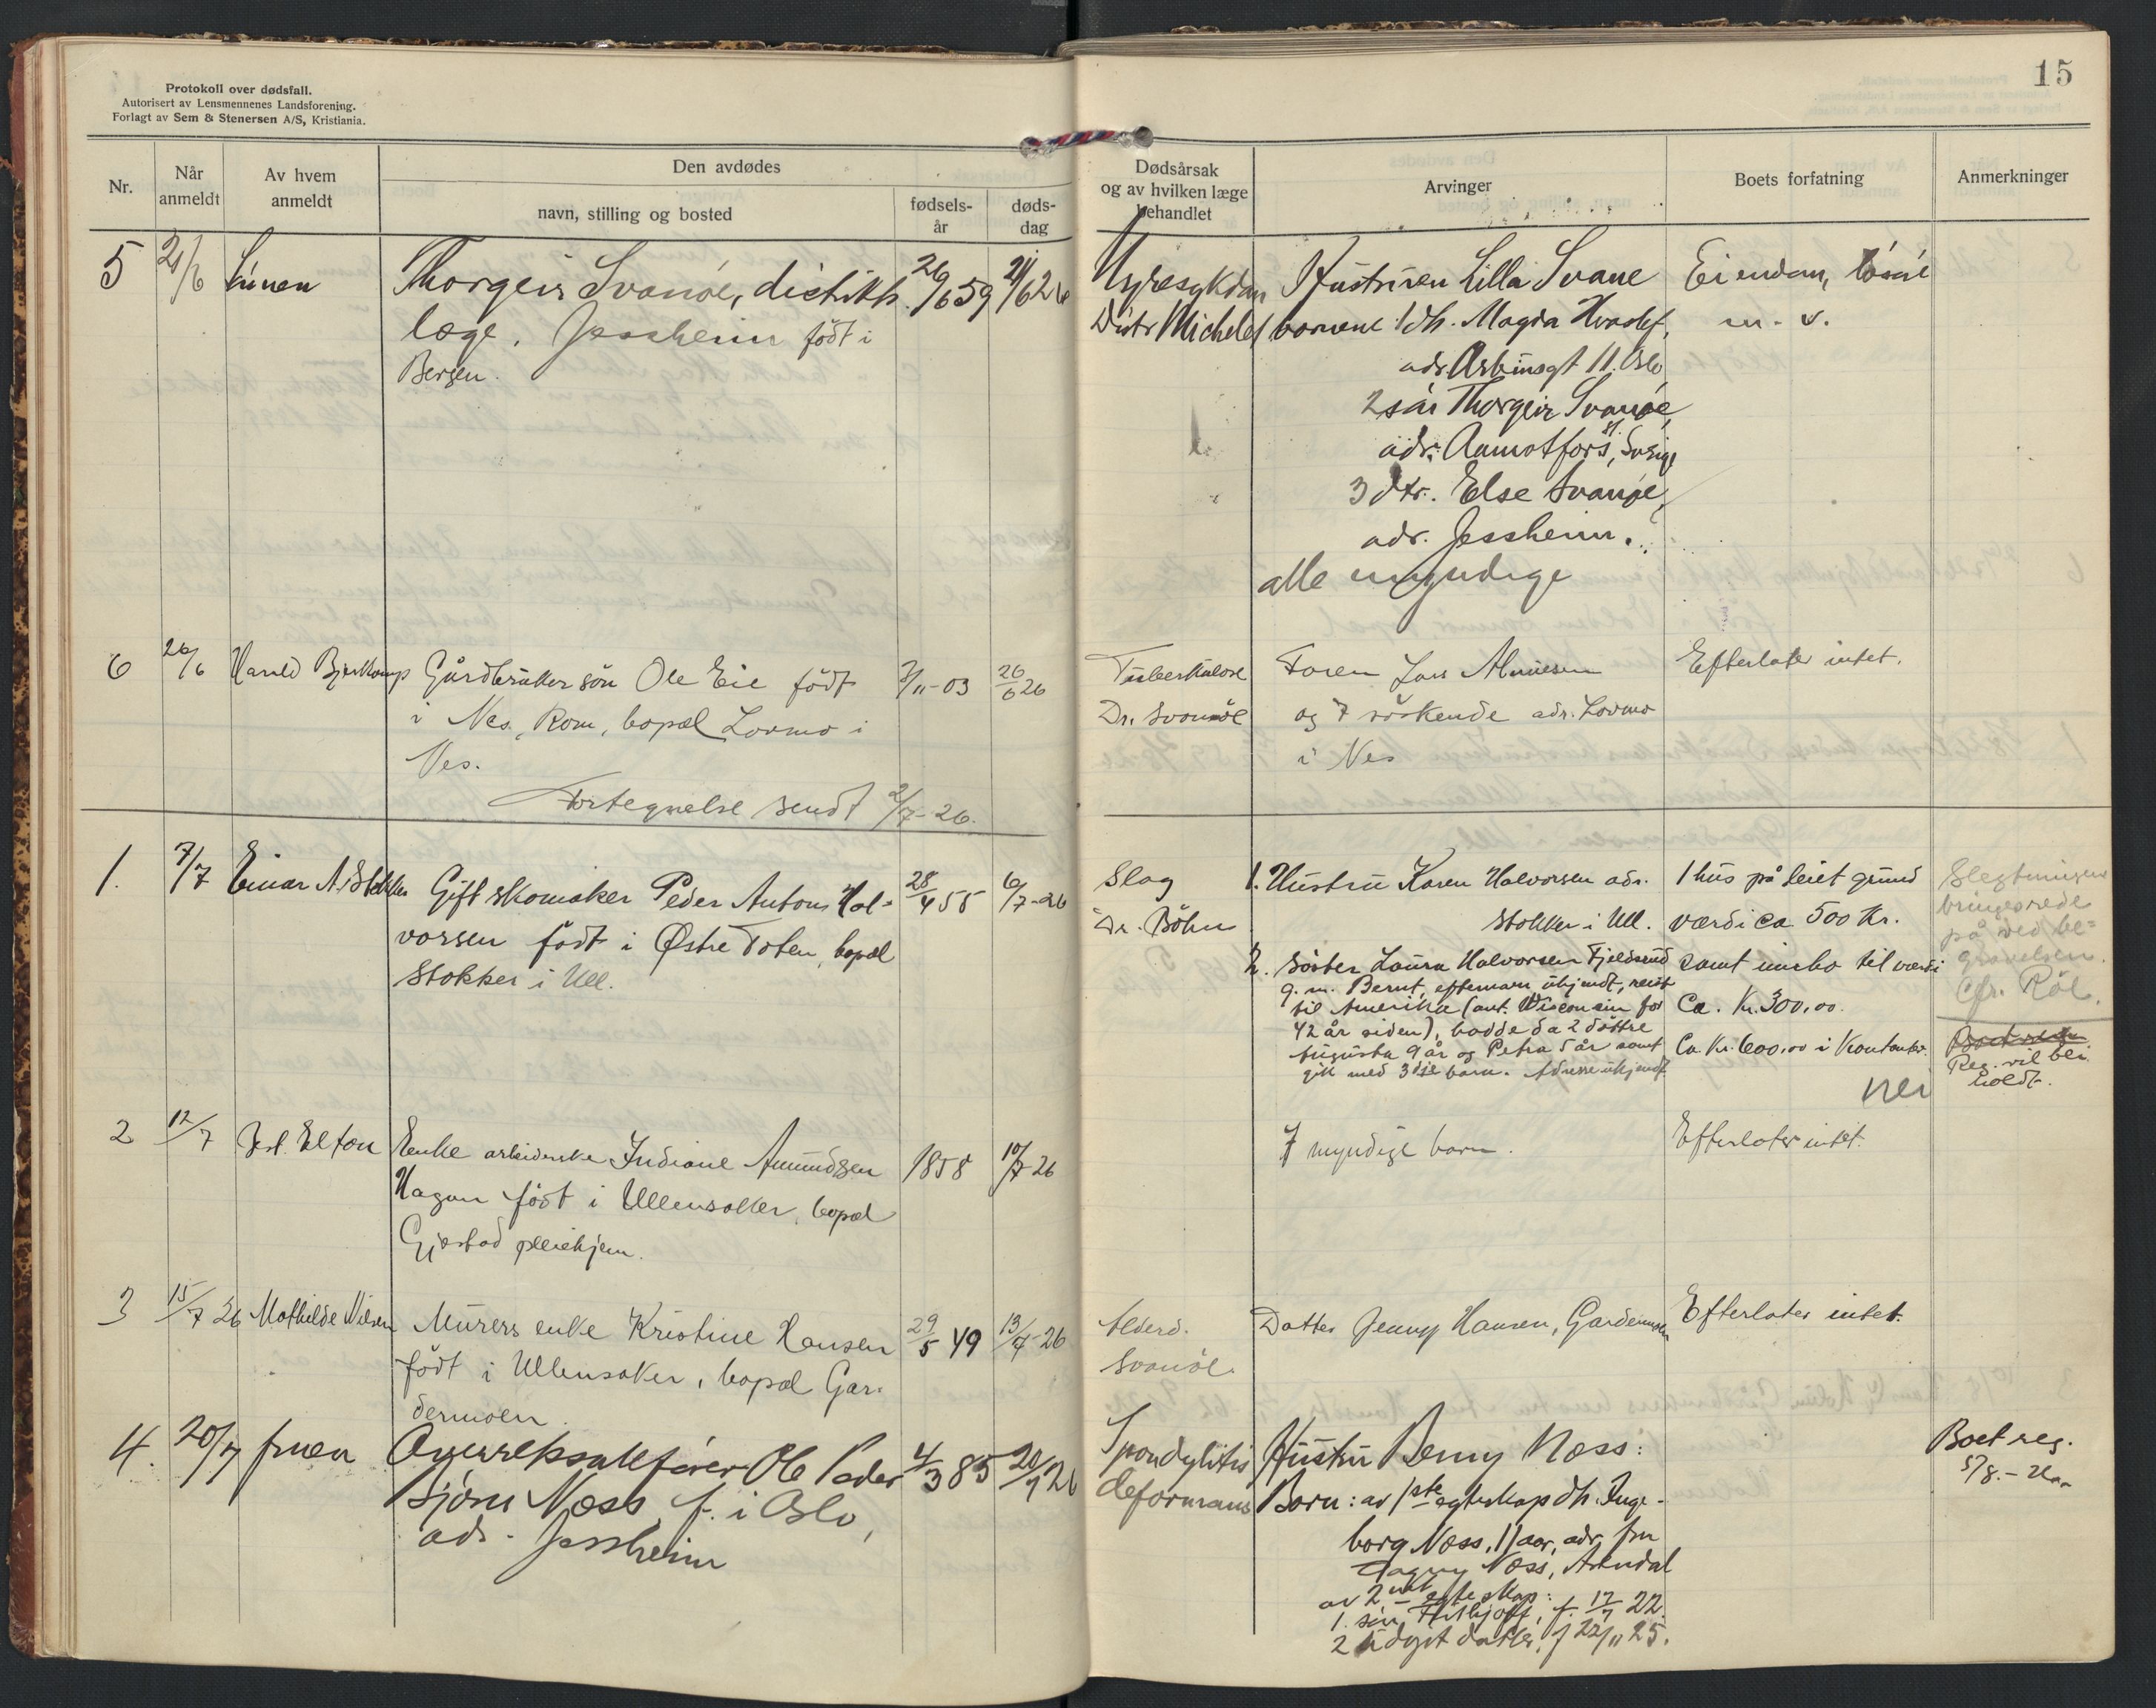 15
Protokoll over dødsfall.
Autorisert av Lensmennenes Landsforening.
Forlagt av Sem & Stenersen A/S, Kristiania.
Nr.
Når anmeldt
Av hvem anmeldt
Den avdødes
navn, stilling og bosted
fødsels-år
døds-dag
Dødsårsak og av hvilken læge behandlet
Arvinger
Boets forfatning
Anmerkninger
5 21/6
Thorgeir Svanøe, distrikts
læge, Jessheim født i
Bergen.
26/6 59
21/6 26
Nyresykdom
Distr Michelet
Hustruen Lilla Svanøe
barnene: 1 dtr. Magda
adr. Asbiørnsgt 11. Oslo
2 søn Thorgeir Svanøe,
adr. Aamotfors, Sverige
3 dtr. Else Svanøe,
adr. Jessheim.
alle myndige
Eiendom, løsøre
m. v.
6 26/6 Harald Bjerkamp
Gårdbruker søn Ole Eie født
i Nes, Rom, bopæl Lovmo i
Nes.
3/11-03
26/6 26
Tuberkulose
Dr. Svanøe
Faren Lars
og 7 søskende adr. Lovmo
i Nes
Efterlater intet.
Fortegnelse sendt 2/7-26.
1. 7/7 Einar A. Stokker
Gift skomaker Peder Anton Hal-
vorsen født i Østre Toten, bopæl
Stokker i Ull.
28/4 55
6/7-26
Slag
Dr. Böhn
1. Hustru Karen Halvorsen adr.
Stokker i Ull.
2. Søster Laura Halvorsen Fjeldsrud
g. m. Bernt, efternavn ukjendt, reist
til Amerika (ant. Wisconsin for
42 år siden), hadde da 2 døttre
Augusta 9 år og Petra 5 år samt
gik med 3dje barn. Adresse ukjendt.
1 hus på leiet grund
værdi ca 500 Kr.
samt innbo til værdi
Ca. Kr. 300,00.
Ca. Kr. 600,00 i Kontanter.
nei
bringes rede
på ved be-
gravelsen.
Reg. vil bli
holdt.
2 12/7 Elton
Enke arbeiderske Indiane Amundsen
Hagan født i Ullensaker, bopæl
Gjestad pleiehjem.
1858
10/7-26
7 myndige barn.
Efterlater intet.
3 15/7 26 Mathilde Nilsen
Murers enke Kristine Hansen
født i Ullensaker, bopæl Gar-
dermoen.
29/5 49
13/7-26
Alderd.
Svanøe
Datter Jenny Hansen, Gardermoen
Efterlater intet.
4. 20/7 fruen
Overrettssakfører Ole Peder
Bjørn Næss, f. i Oslo,
adr. Jessheim
4/3 85
20/7 26
Spondylitis
deformans
Hustru Benny Næss:
Barn: av 1ste egteskap dtr. Inge-
borg Næss, 11 aar, adr. fru
Dagny Næss, Arendal
av 2net egteskap:
1. søn, Frithjoff, f. 17/7 22.
2 udøpt datter, f 22/11 25.
Boet reg.
5/8.-26